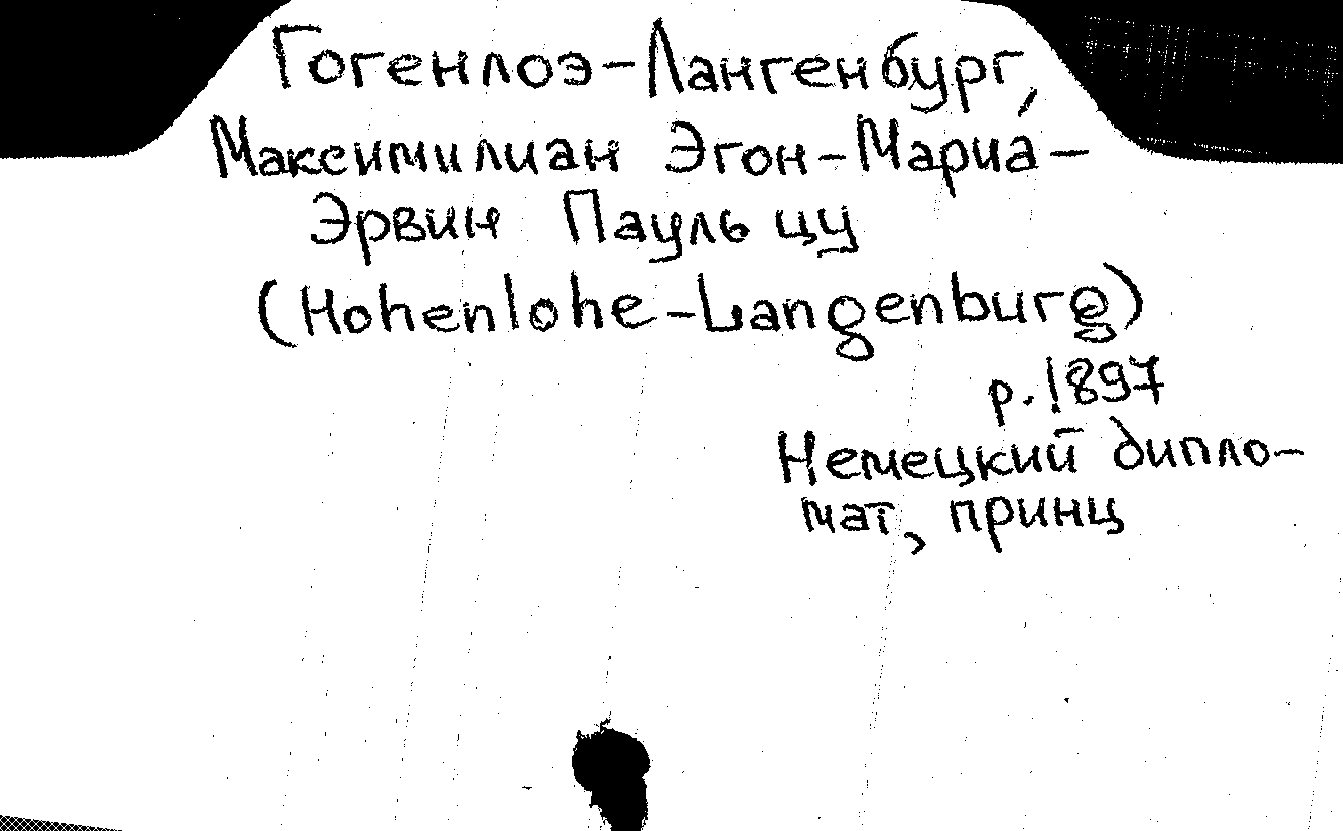 Гогенлоэ-Лангенбург,
Максимилиан Эгон-Мариа-
Эрвин Пауль цу
(Hohenlohe-Langenburg)
р. 1897
Немецкий дипло-
мат, принц